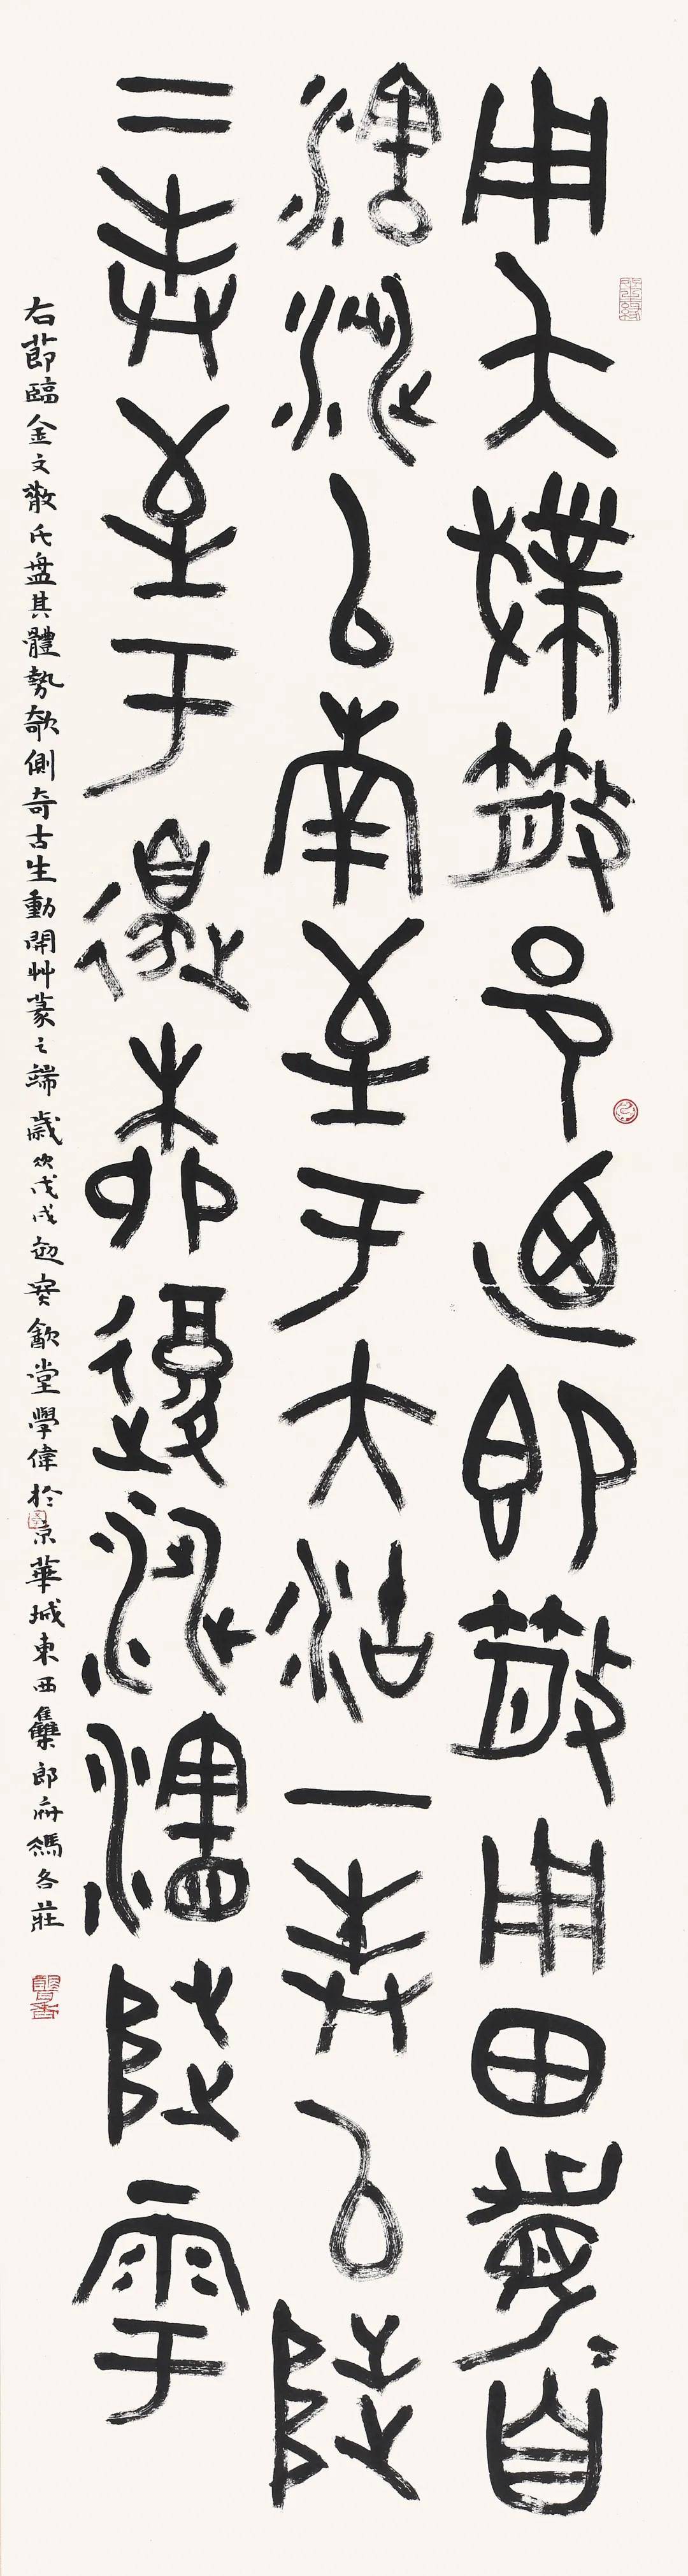 用夨撲散邑迺即散用田眉自
瀗涉以南至于大沽一封以陟
二封至于邊柳復涉瀗陟雩
右節臨金文散氏盤其體勢欹側奇古生動開艸篆之端歲次戊戌寒歙堂學偉於京華城東西集郎府馮各莊